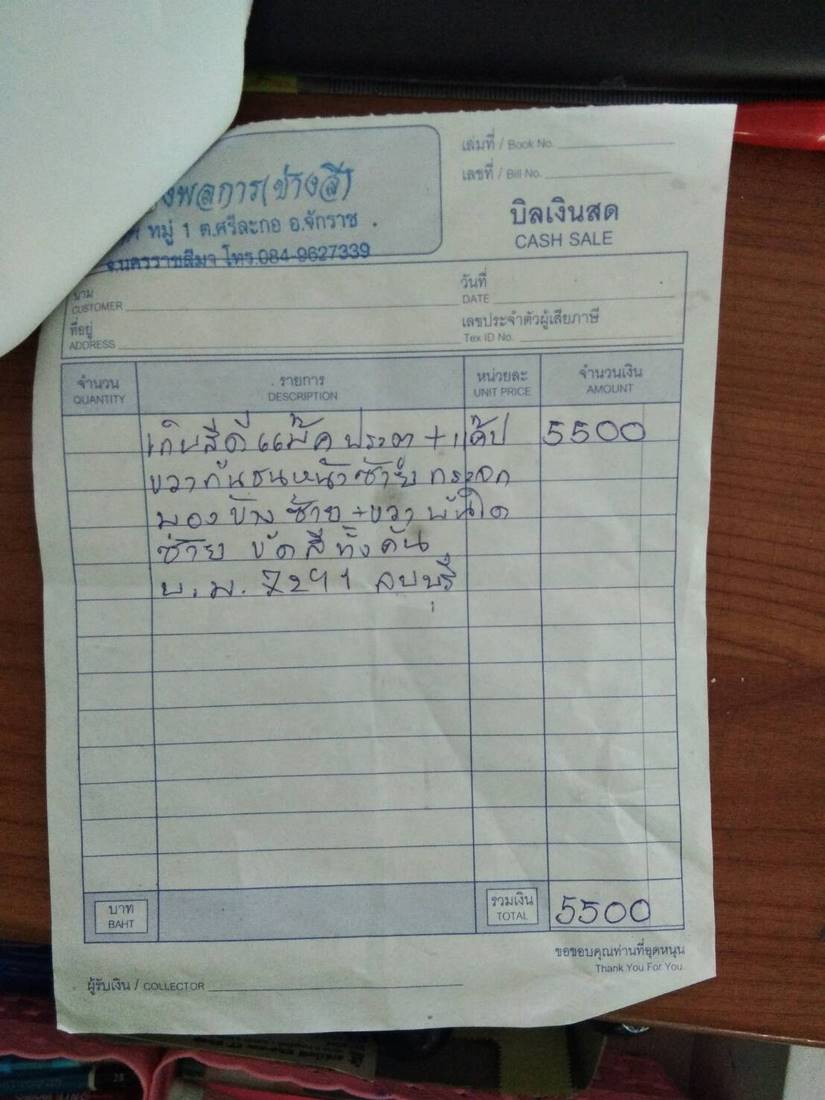 งพลการ(ช่างสี)
หมู่ 1 ต.ศรีละกอ อ.จักราช
จ.นครราชสีมา โทร.084-9627339
เล่มที่ / Book No.
เลขที่ / Bill No.
บิลเงินสด
CASH SALE
นาม
CUSTOMER
วันที่
DATE
ที่อยู่
ADDRESS
เลขประจำตัวผู้เสียภาษี
Tex ID No.
จำนวน
QUANTITY
รายการ
DESCRIPTION
หน่วยละ
UNIT PRICE
จำนวนเงิน
AMOUNT
เก็บสีดีแม๊คประตู+แค๊ป 5500
ขวากันชนหน้าซ้าย กระจก
มองข้างซ้าย+ขวา บันได
ซ้าย ขัดสีทั้งคัน
บ.ม. 7291 ลบบุรี
บาท
BAHT
รวมเงิน
TOTAL
5500
ขอขอบคุณท่านที่อุดหนุน
Thank You For You
ผู้รับเงิน / COLLECTOR